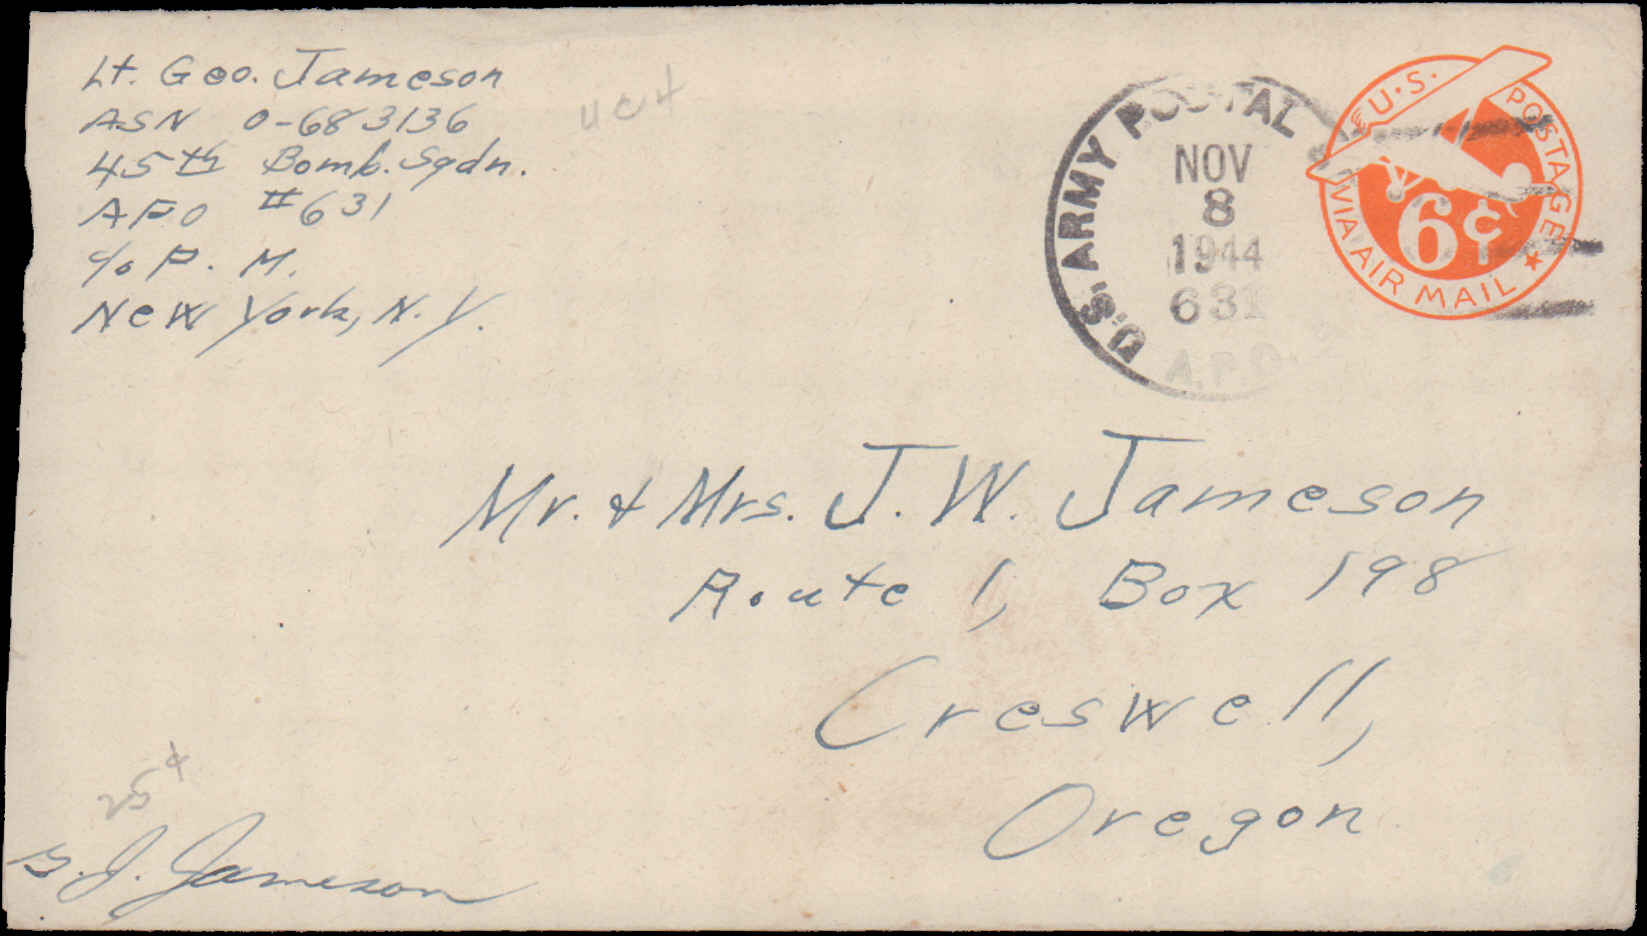 Lt. Geo. Jameson
ASN O-683136
45th Bomb. Sqdn.
APO #631
c/o P. M.
New York, N. Y.
UC4
U.S. ARMY POSTAL
NOV
8
1944
631
A.P.O.
U.S. POSTAGE
6¢
VIA AIR MAIL
Mr. & Mrs. J. W. Jameson
Route 1, Box 198
Creswell,
Oregon
25¢
G. J. Jameson